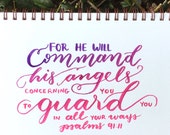 FOR HE WILL
Command
his angels
CONCERNING YOU
TO guard YOU
IN all your ways
psalms 91:11